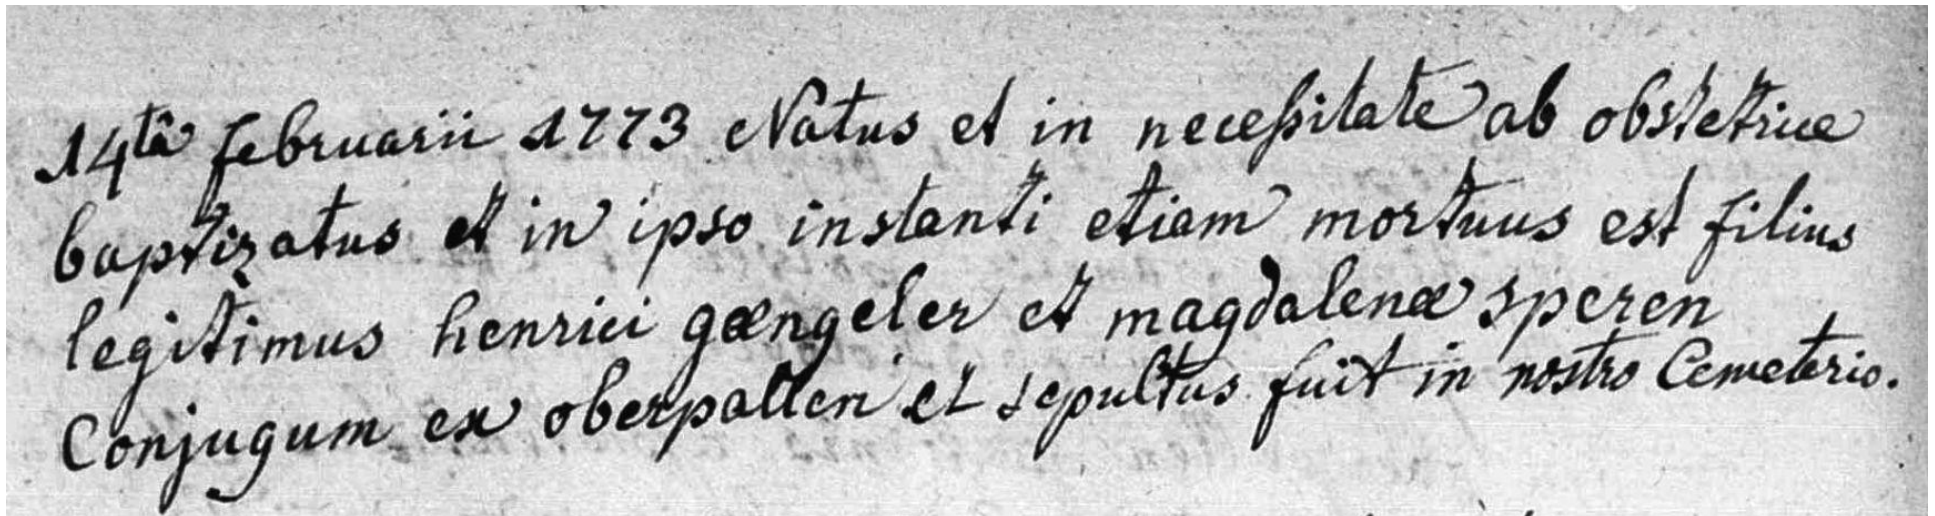 14tâ februarii 1773 Natus et in neceßitate ab obstetrice
baptizatus et in ipso instanti etiam mortuus est filius
legitimus henrici gœngeler et magdalenæ speren
Conjugum ex oberpallen et sepultus fuit in nostro Cemeterio.